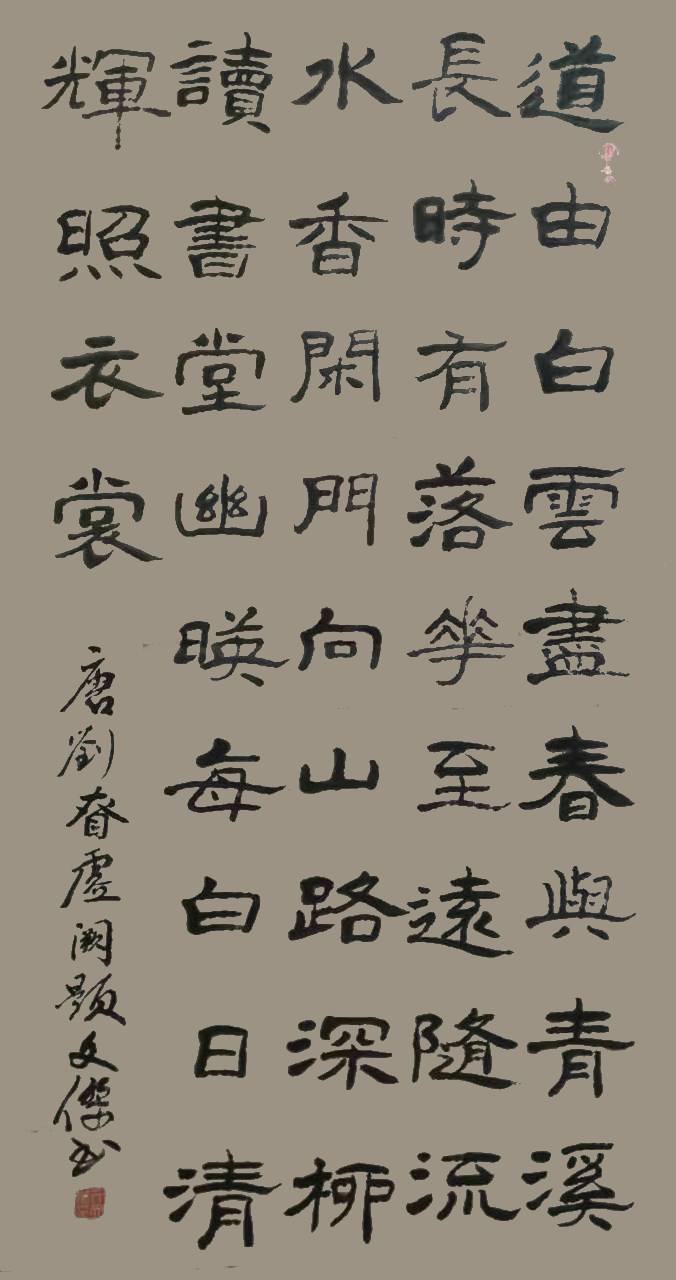 道由白雲盡春與青溪
長時有落花至遠隨流
水香閑門向山路深柳
讀書堂幽暎每白日清
輝照衣裳
唐劉眘虛闕題文傑书